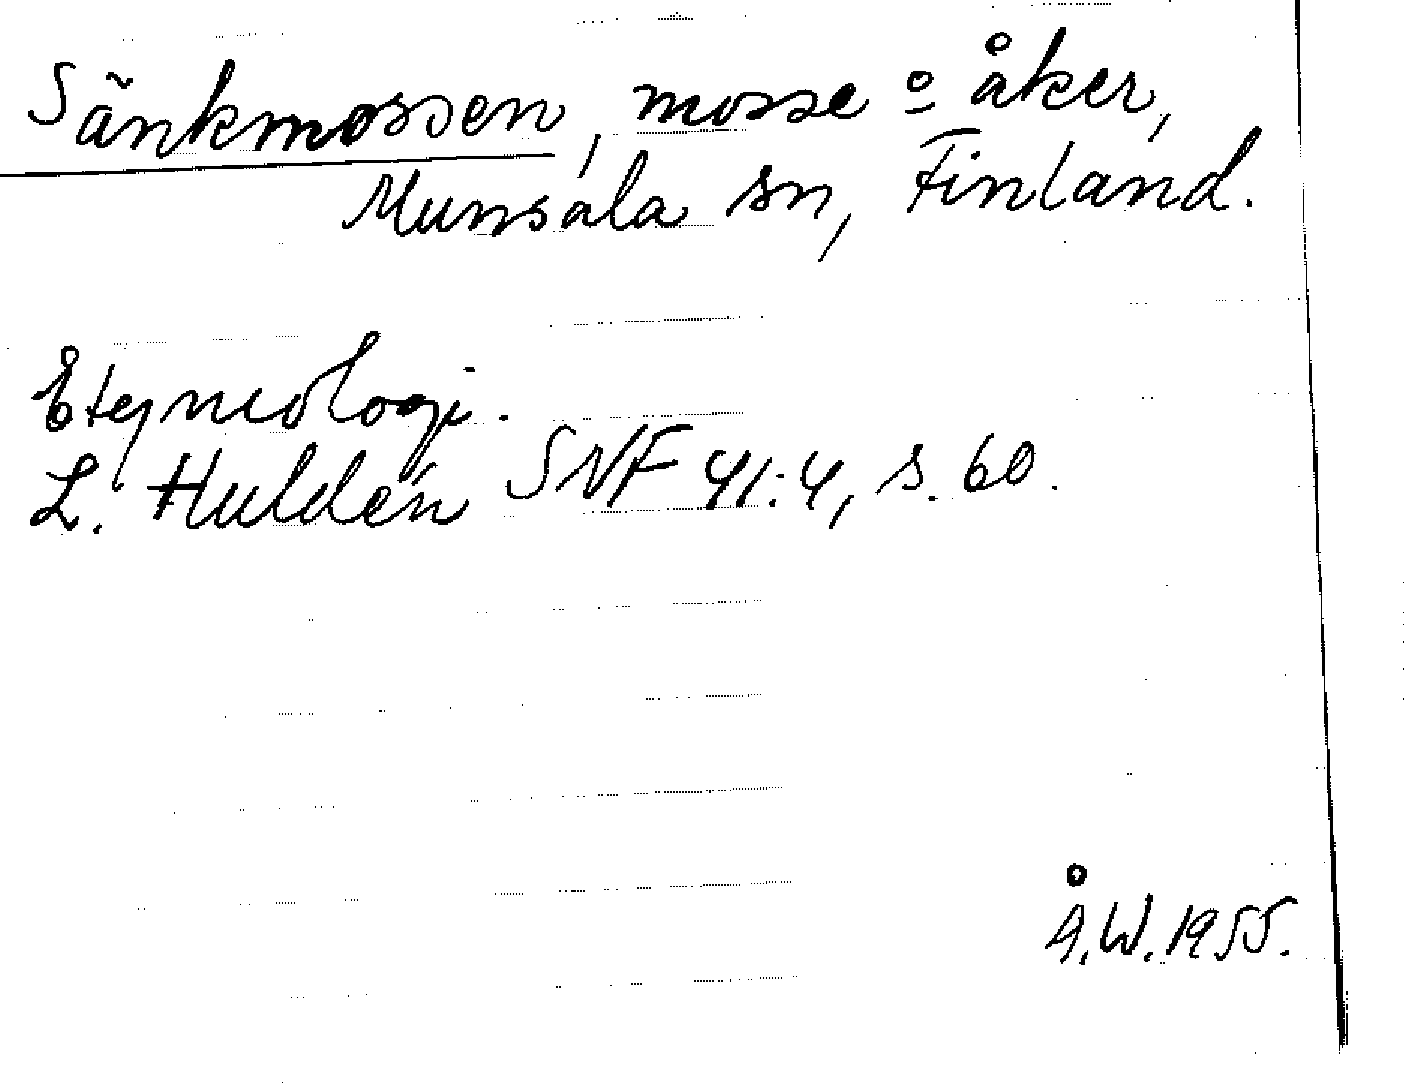 Sänkmossen, mosse o åker,
Munsala sn, Finland.
Etymologi.
L. Huldén SNF 41:4, s. 60.
Å.W. 1955.